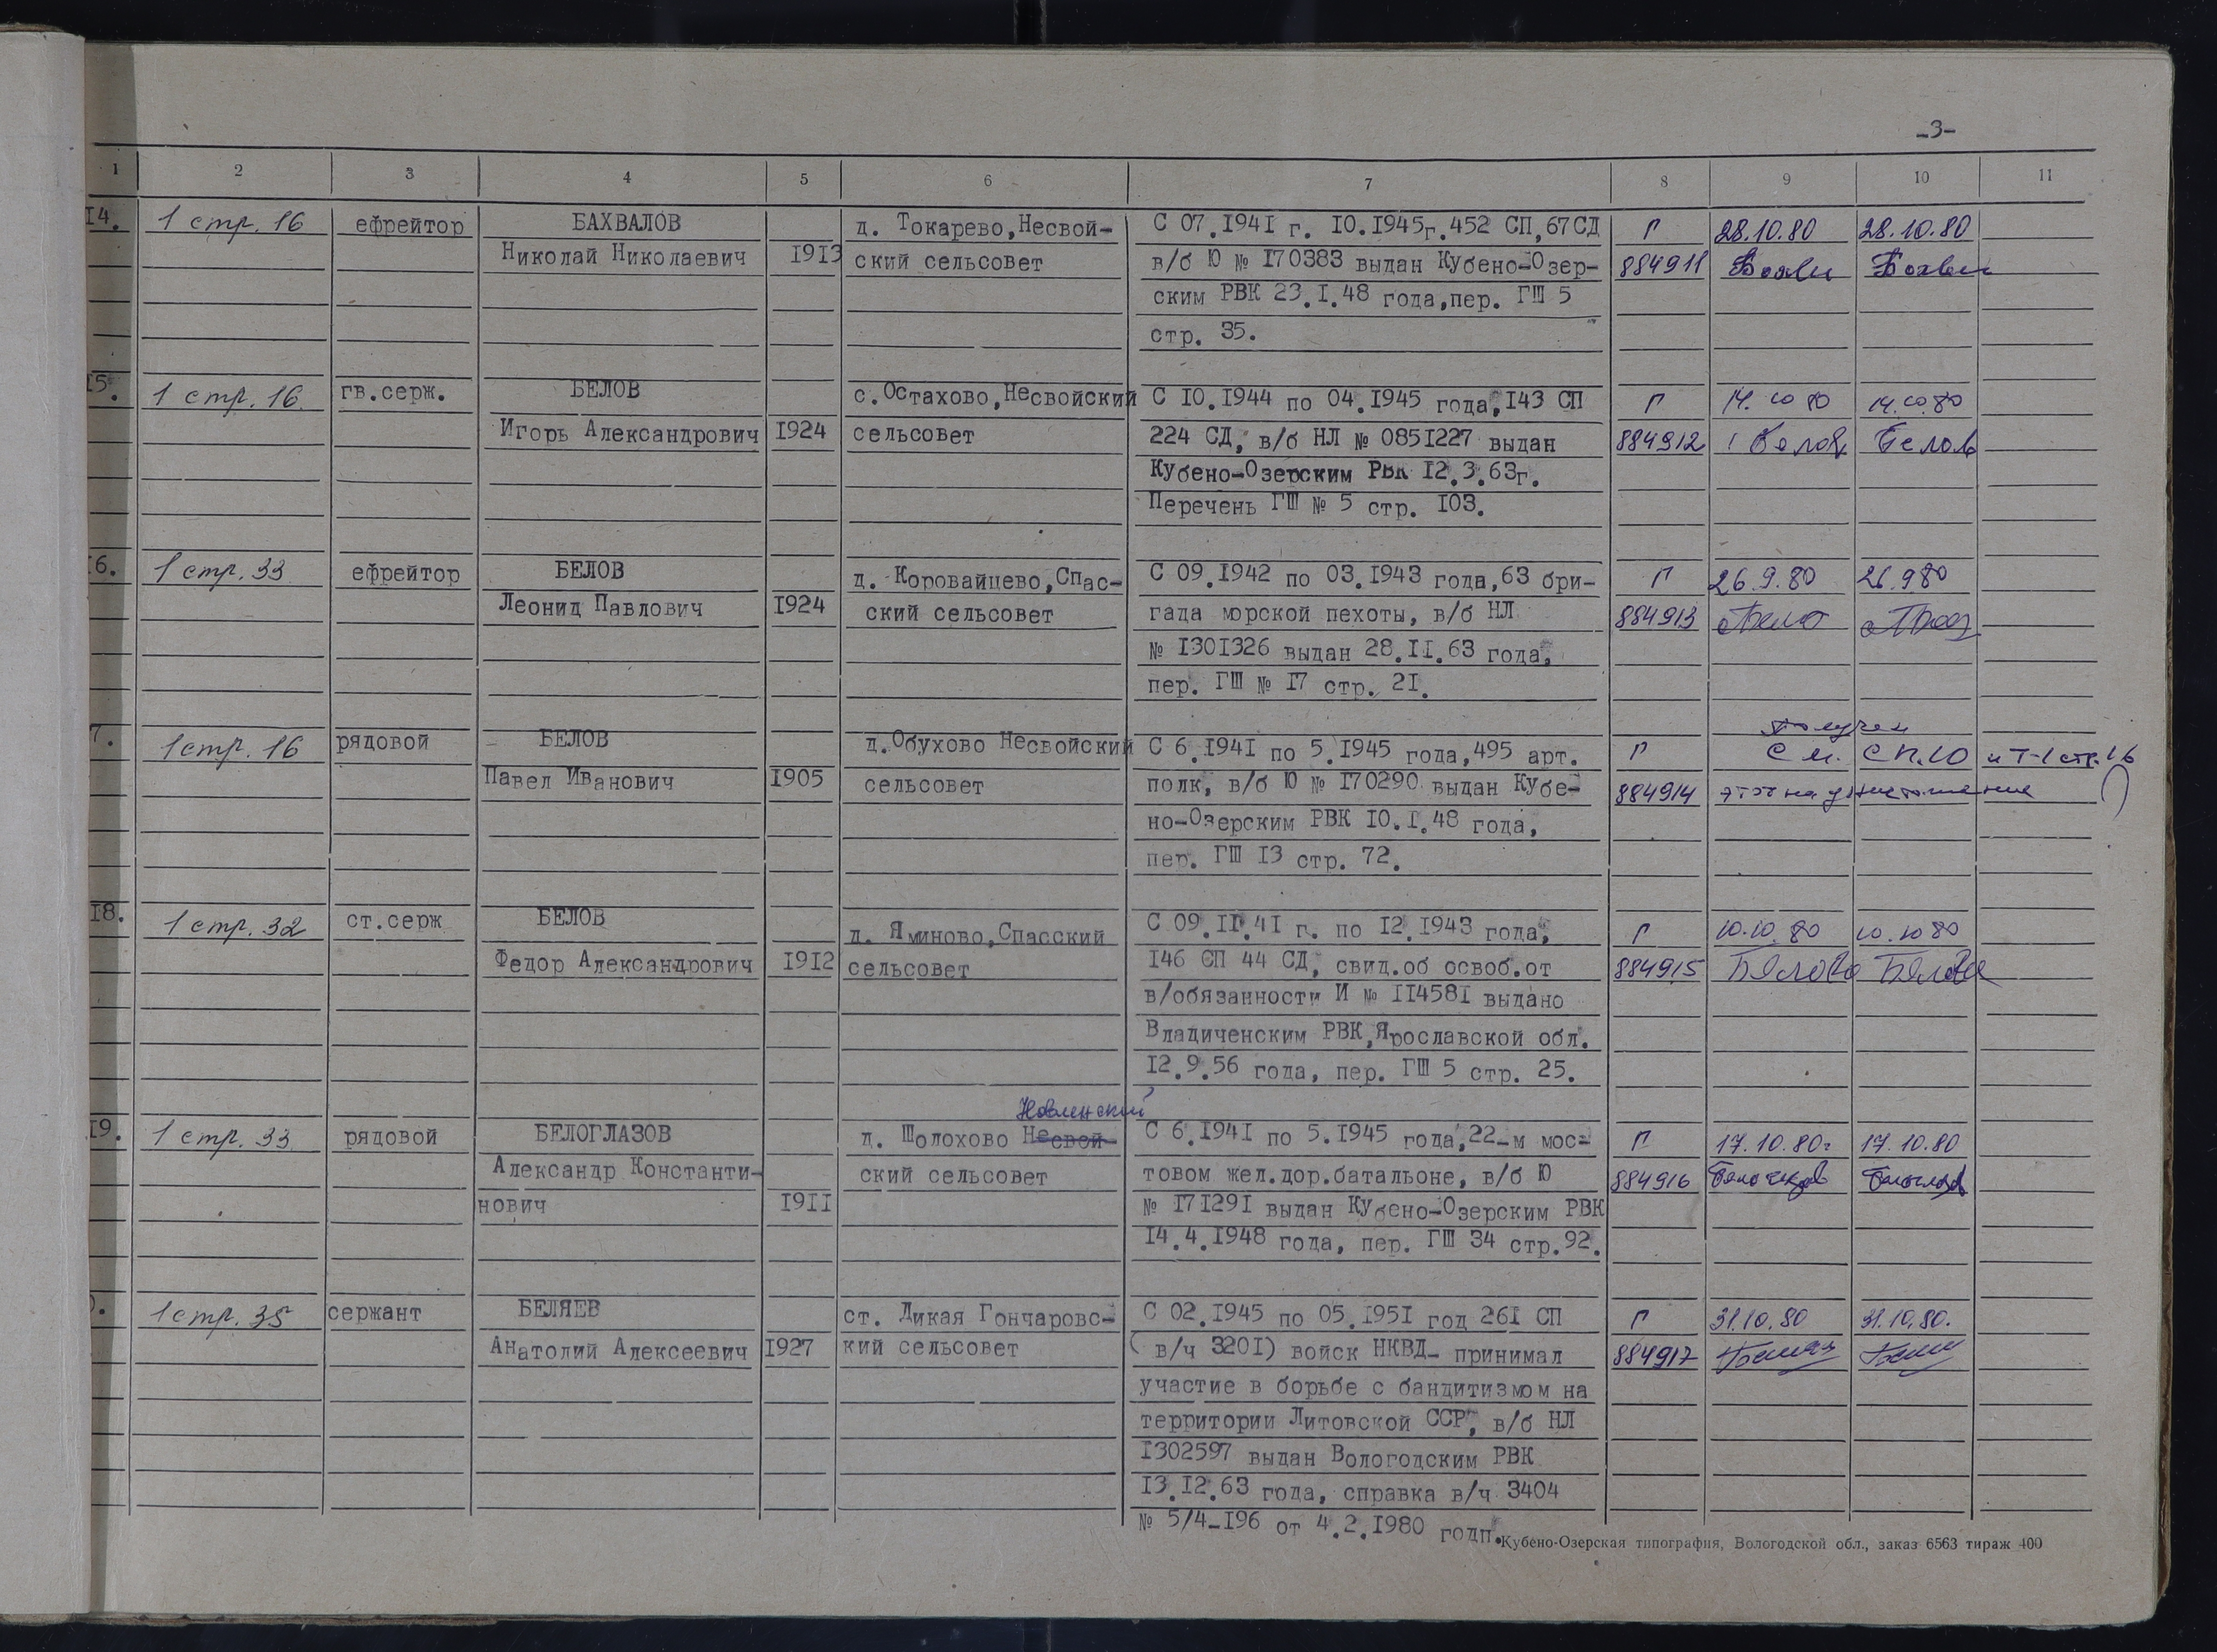 -3-
1 2 3 4 5 6 7 8 9 10 11
14. 1 стр. 16 ефрейтор БАХВАЛОВ д. Токарево,Несвой- С 07.1941 г. 10.1945г.452 СП,67СД Г 28.10.80 28.10.80
Николай Николаевич 1913 ский сельсовет в/б Ю № 170383 выдан Кубено-Озер- 884911
ским РВК 23.1.48 года,пер. ГШ 5
стр. 35.
15. 1 стр. 16. гв.серж. БЕЛОВ с.Остахово,Несвойский С 10.1944 по 04.1945 года,143 СП Г 14.10 80 14.10.80
Игорь Александрович 1924 сельсовет 224 СД, в/б НЛ № 0851227 выдан 884912 Белов Белов
Кубено-Озерским РВК 12.3.63г.
Перечень ГШ № 5 стр. 103.
16. 1 стр. 33 ефрейтор БЕЛОВ д. Коровайцево,Спас- С 09.1942 по 03.1943 года,63 бри- Г 26.9.80 26.9 80
Леонид Павлович 1924 ский сельсовет гада морской пехоты, в/б НЛ 884913
№ 1301326 выдан 28.11.63 года,
пер. ГШ № 17 стр. 21.
7. 1 стр. 16 рядовой БЕЛОВ д.Обухово Несвойский С 6.1941 по 5.1945 года,495 арт. Г см. сп.10 и Т-1 стр.16
Павел Иванович 1905 сельсовет полк, в/б Ю № 170290 выдан Кубе- 884914 этот на уничтожение
но-Озерским РВК 10.1.48 года,
пер. ГШ 13 стр. 72.
18. 1 стр. 32 ст.серж БЕЛОВ д. Яминово,Спасский С 09.11.41 г. по 12.1943 года, Г 10.10.80 10.10 80
Федор Александрович 1912 сельсовет 146 СП 44 СД, свид.об освоб.от 884915 Бялова Бялова
в/обязанности И № 114581 выдано
Владиченским РВК,Ярославской обл.
12.9.56 года, пер. ГШ 5 стр. 25.
Новленский
19. 1 стр. 33 рядовой БЕЛОГЛАЗОВ д. Шолохово Несвой- С 6.1941 по 5.1945 года,22-м мос- Г 17.10.80г 17.10.80
Александр Константи- ский сельсовет товом жел.дор.батальоне, в/б Ю 884916
нович 1911 № 171291 выдан Кубено-Озерским РВК
14.4.1948 года, пер. ГШ 34 стр.92.
1 стр. 35 сержант БЕЛЯЕВ ст. Дикая Гончаровс- С 02.1945 по 05.1951 год 261 СП Г 31.10.80 31.10.80.
Анатолий Алексеевич 1927 кий сельсовет ( в/ч 3201) войск НКВД- принимал 884917
участие в борьбе с бандитизмом на
территории Литовской ССР, в/б НЛ
1302597 выдан Вологодским РВК
13.12.63 года, справка в/ч 3404
№ 5/4-196 от 4.2.1980 годп.
Кубено-Озерская типография, Вологодской обл., заказ 6563 тираж 400